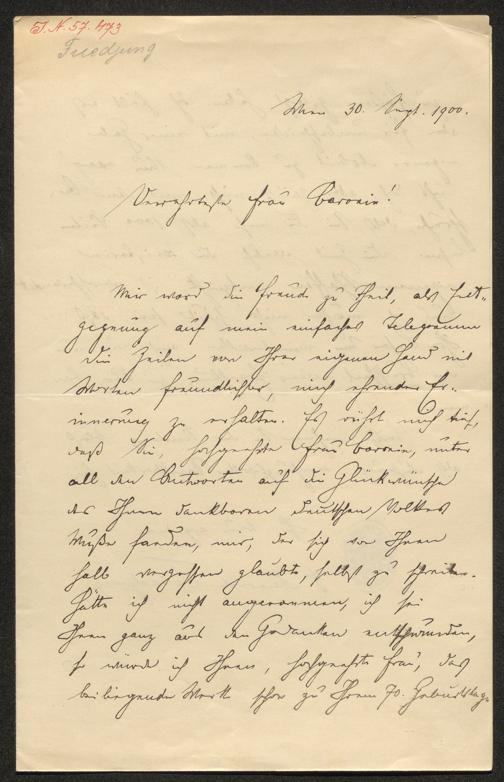 J.N. 57.473
Friedjung
Wien 30. Sept. 1900.
Verehrteste Frau Baronin!
Mir ward die Freude zu Theil, als Ent-
gegnung auf mein einfaches Telegramm
die Zeilen von Ihrer eigenen Hand mit
Worten freundlichster, mich ehrender Er-
innerung zu erhalten. Es rührt mich tief,
daß Sie, hochgeehrte Frau Baronin, unter
all den Antworten auf die Glückwünsche
des Ihnen dankbaren deutschen Volkes
Muße fanden, mir, der sich von Ihnen
halb vergessen glaubte, selbst zu schreiben.
Hätte ich nicht angenommen, ich sei
Ihnen ganz aus den Gedanken entschwunden,
so würde ich Ihnen, hochgeehrte Frau, das
beiliegende Werk schon zu Ihrem 70. Geburtstage